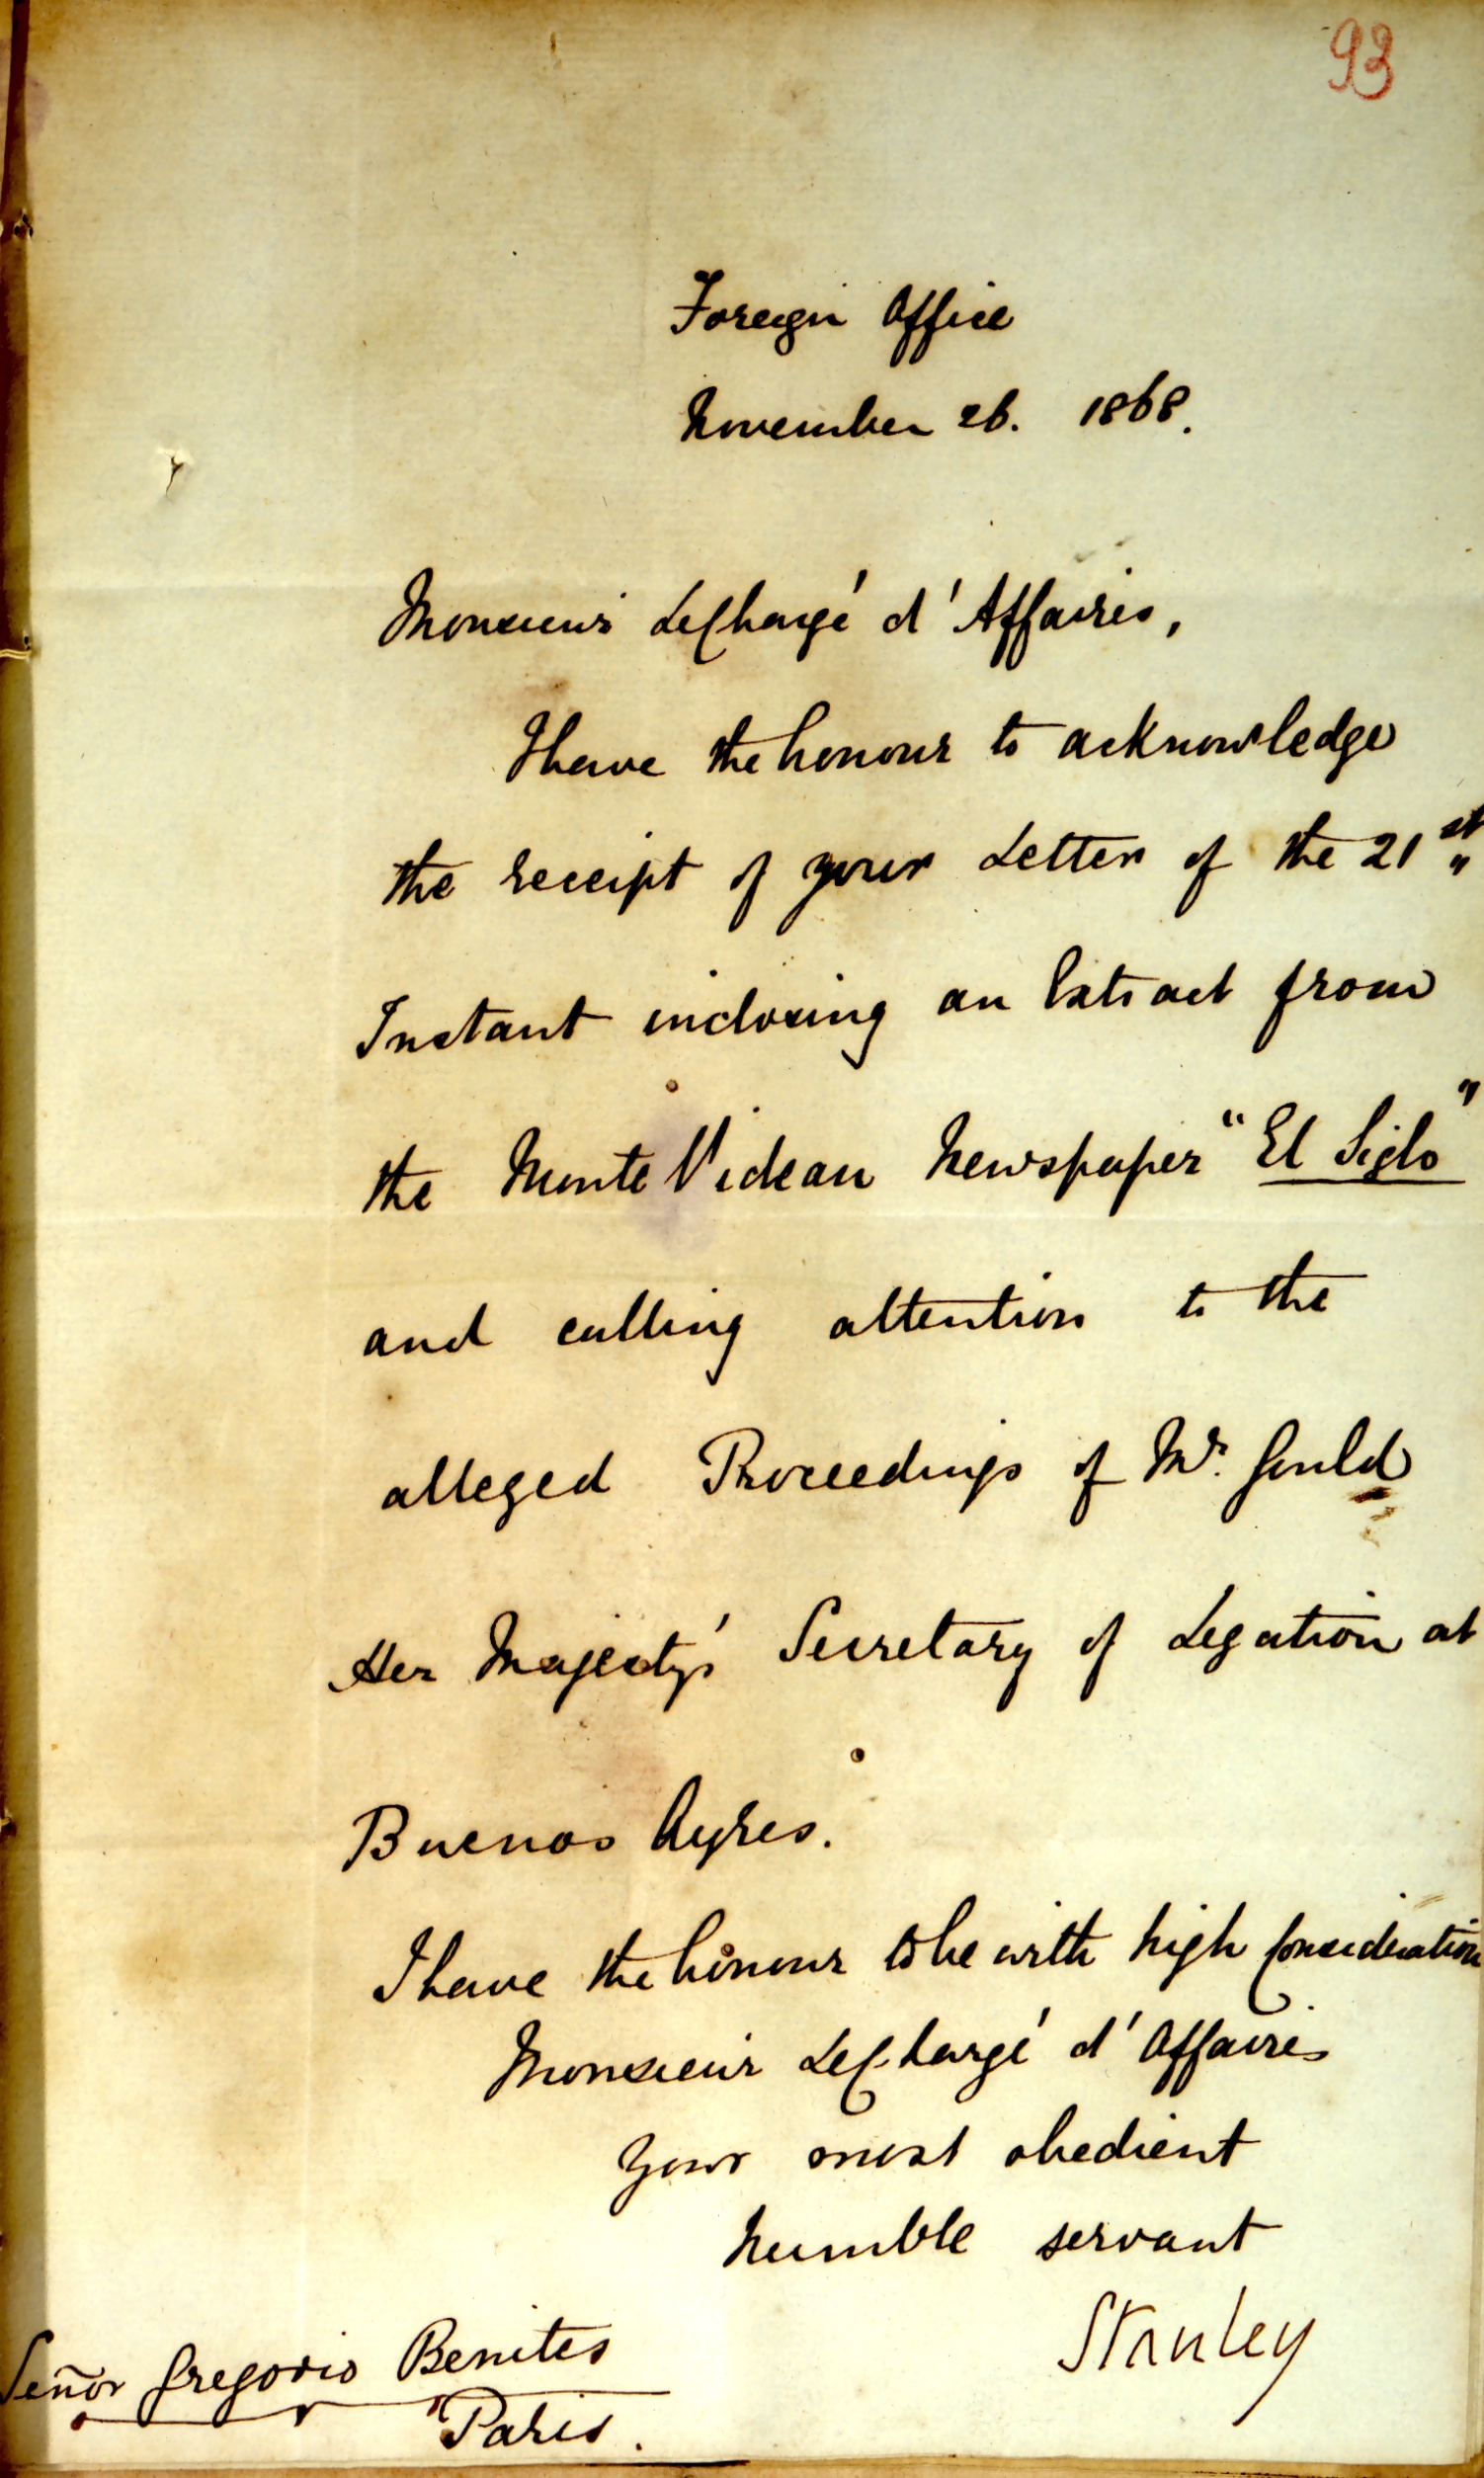 93
Foreign Office
November 26. 1868.
Monsieur Le Chargé d'Affaires,
I have the honour to acknowledge
the receipt of your Letter of the 21st
Instant inclosing an Extract from
the Monte Videan Newspaper "El Siglo"
and calling attention to the
alleged Proceedings of Mr. Gould
Her Majesty's Secretary of Legation at
Buenos Ayres.
I have the honour to be with high Consideration
Monsieur Le Chargé d'Affaires
Your most obedient
humble servant
Stanley
Señor Gregorio Benites
Paris.